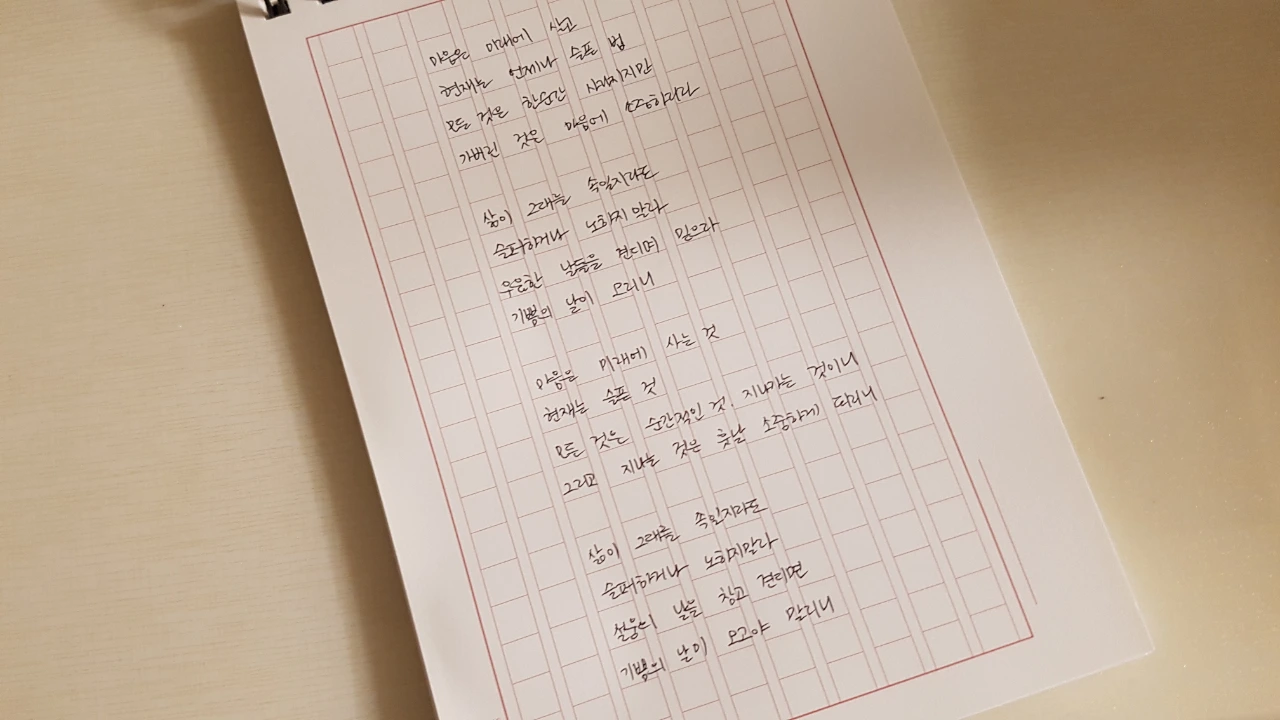 마음은 미래에 살고
현재는 언제나 슬픈 법
모든 것은 한순간 사라지지만
가버린 것은 마음에 소중하리라
삶이 그대를 속일지라도
슬퍼하거나 노하지 말라
우울한 날들을 견디며 믿으라
기쁨의 날이 오리니
마음은 미래에 사는 것
현재는 슬픈 것
모든 것은 순간적인 것. 지나가는 것이니
그리고 지나는 것은 훗날 소중하게 되리니
삶이 그대를 속일지라도
슬퍼하거나 노하지말라
설움의 날을 참고 견디면
기쁨의 날이 오고야 말리니